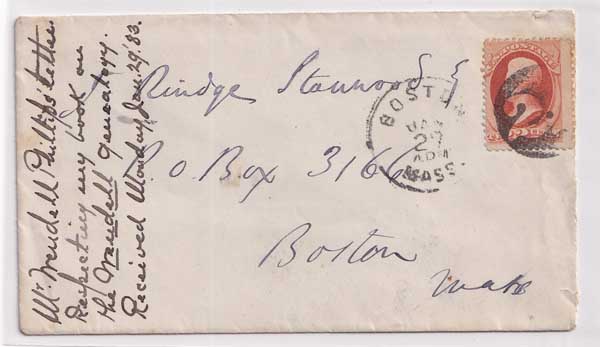 Mr Wendell Phillips' letter
Respecting my book on
the Wendell genealogy.
Received Monday Jan. 29. '83.
J. Rindge Stanwood Esq
P. O. Box 316
Boston
Mass
BOSTON
JAN
27
MASS.